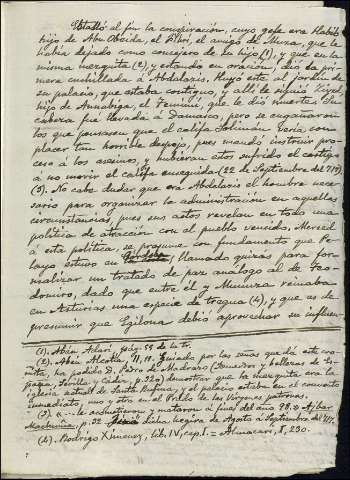 Estalló al fin la conspiración, cuyo gefe era Habib
hijo de Abu Obeida, el Fihri, el amigo de Muza, que le
había dejado como consejero de su hijo (1), y que en la
misma mezquita (2), y estando en oración, dió la pri-
mera cuchillada á Abdalazis. Huyó este al jardín de
su palacio, que estaba contiguo, y allí le siguió Ziyed,
hijo de Annabiga, el Temimí, que le dió muerte. Su
cabeza fué llevada á Damasco, pero se engañaron
los que pensasen que el califa Solimán vería com-
placer tan horrible despojo, pues mandó instruir pro-
ceso á los asesinos, y hubieran estos sufrido el castigo
á no morir el califa enseguida (22 de Septiembre del 717)
(3). No cabe dudar que era Abdalazis el hombre nece-
sario para organizar la administración en aquellas
circunstancias, pues sus actos revelan en todo una
política de atracción con el pueblo vencido. Merced
á esta política, se presume con fundamento que Pe-
layo estuvo en Córdoba, llamado quizás para for-
malizar un tratado de paz análogo al de Teo-
domiro, dado que entre él y Munuza reinaba
en Asturias una especie de tregua (4), y que es de
presumir que Egilona debió aprovechar su influen-
(1). Abén Adarí, pág. 55 de la tr.
(2). Aben Alcotía, 11, 11. Guiado por las señas que dá este cro-
nista, ha podido D. Pedro de Madrazo (Recuerdos y bellezas de Es-
paña, Sevilla y Cádiz, p. 320) demostrar que la mezquita era la
iglesia actual de Santa Rufina, y el palacio estaba en el convento
inmediato, uno y otro en el Prado de las Vírgenes patronas.
(3). le destituyeron y mataron á fines del año 98. Ajbar
Machmúa, p. 32 dicha hegira de Agosto á Septiembre del 717.
(4). Rodrigo Ximenez, lib. IV, cap. I. = Almacari, I, 230.